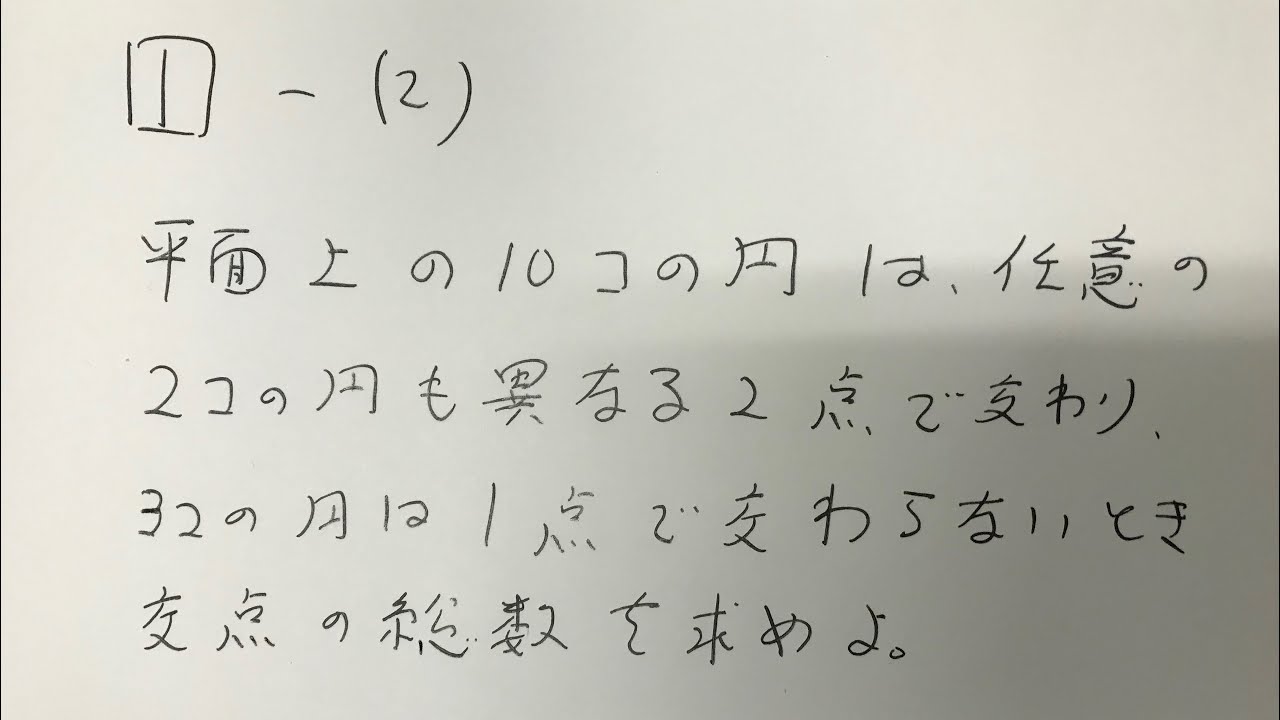 1 - (2)
平面上の10コの円は、任意の
2コの円も異なる2点で交わり、
3コの円は1点で交わらないとき
交点の総数を求めよ。